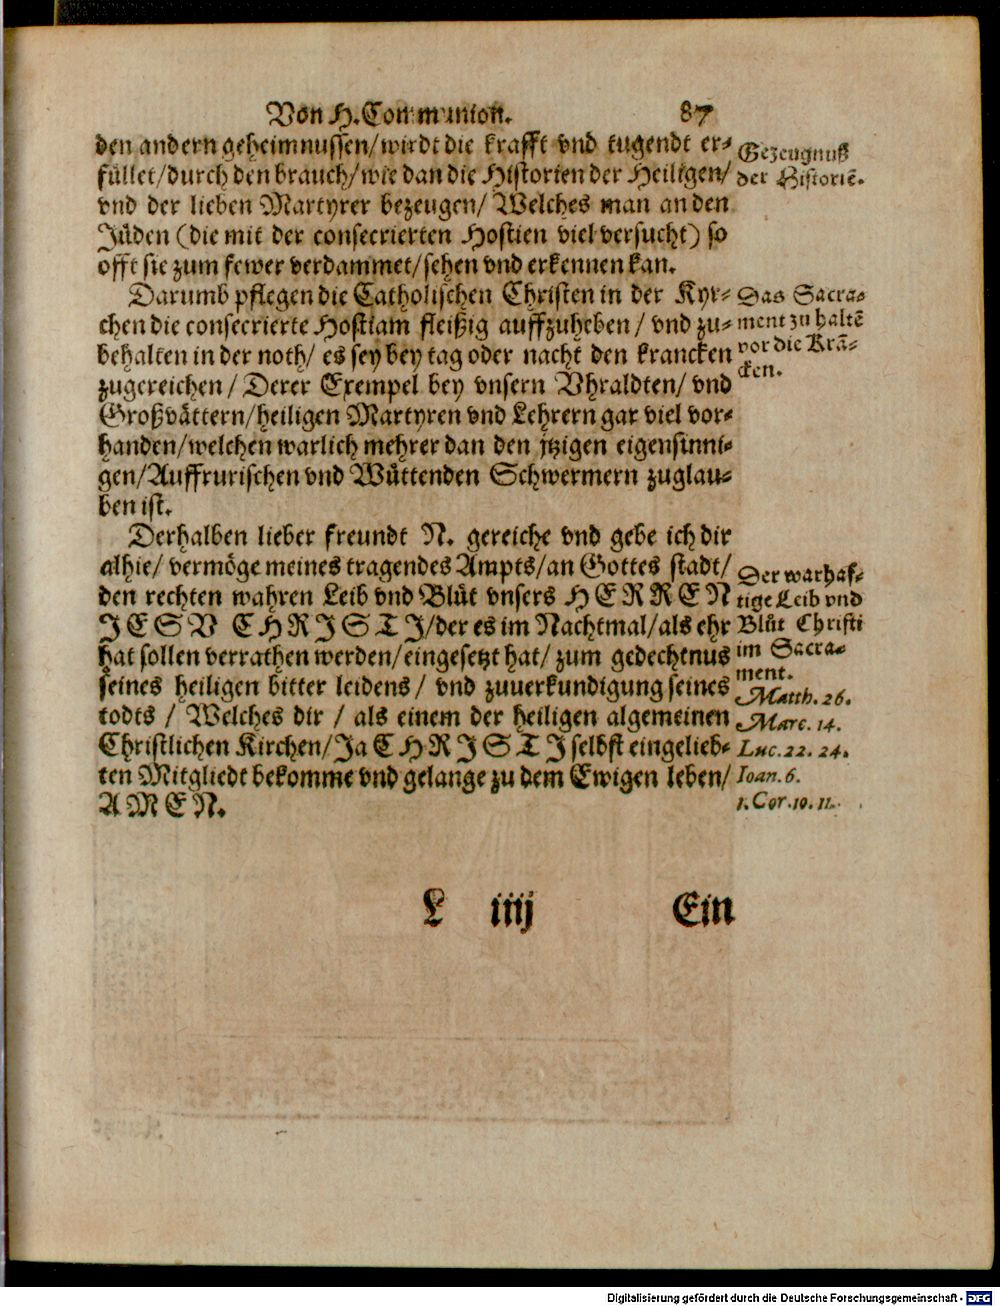 Von H. Communion. 87
den andern geheimnussen/wirdt die krafft vnd tugendt er⸗
füllet/durch den brauch/wie dan die Historien der Heiligen/
vnd der lieben Martyrer bezeugen/ Welches man an den
Jüden (die mit der consecrierten Hostien viel versucht) so
offt sie zum fewer verdammet/sehen vnd erkennen kan.
Darumb pflegen die Catholischen Christen in der Kyr⸗
chen die consecrierte Hostiam fleißig auffzuheben / vnd zu⸗
behalten in der noth/ es sey bey tag oder nacht den krancken
zugereichen / Derer Exempel bey vnsern Vhraldten/ vnd
Großvättern/heiligen Martyren vnd Lehrern gar viel vor⸗
handen/welchen warlich mehrer dan den jtzigen eigensinni⸗
gen/Auffrurischen vnd Wüttenden Schwermern zuglau⸗
ben ist.
Derhalben lieber freundt N. gereiche vnd gebe ich dir
alhie/ vermöge meines tragendes Ampts/an Gottes stadt/
den rechten wahren Leib vnd Blůt vnsers HERREN
JESV CHRISTI/der es im Nachtmal/als ehr
hat sollen verrathen werden/eingesetzt hat/ zum gedechtnus
seines heiligen bitter leidens / vnd zuuerkundigung seines
todts / Welches dir / als einem der heiligen algemeinen
Christlichen Kirchen/Ja CHRISTI selbst eingelieb⸗
ten Mitgliedt bekomme vnd gelange zu dem Ewigen leben/
AMEN.
Gezeugnuß
der Historiē.
Das Sacra⸗
ment zu haltē
vor die Krā⸗
cken.
Der warhaf⸗
tige Leib vnd
Blůt Christi
im Sacra⸗
ment.
Matth. 26.
Marc. 14.
Luc. 22. 24.
Ioan. 6.
1. Cor. 10. 11.
L iiij Ein
Digitalisierung gefördert durch die Deutsche Forschungsgemeinschaft - DFG